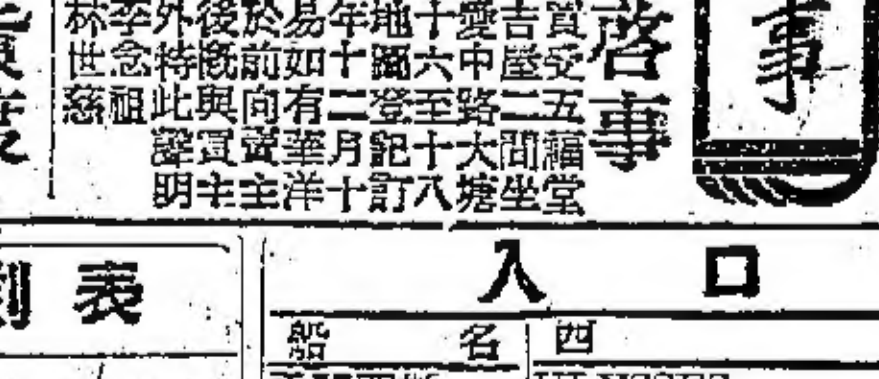 事
啓事
買受五福堂
吉屋二間坐
愛中路大塘
十六至十八
地圖登記訂
年十二月十
易如有華洋
於前向賣主
後概與買主
外特此聲明
李念祖
林世慈
口入
名船
西
表